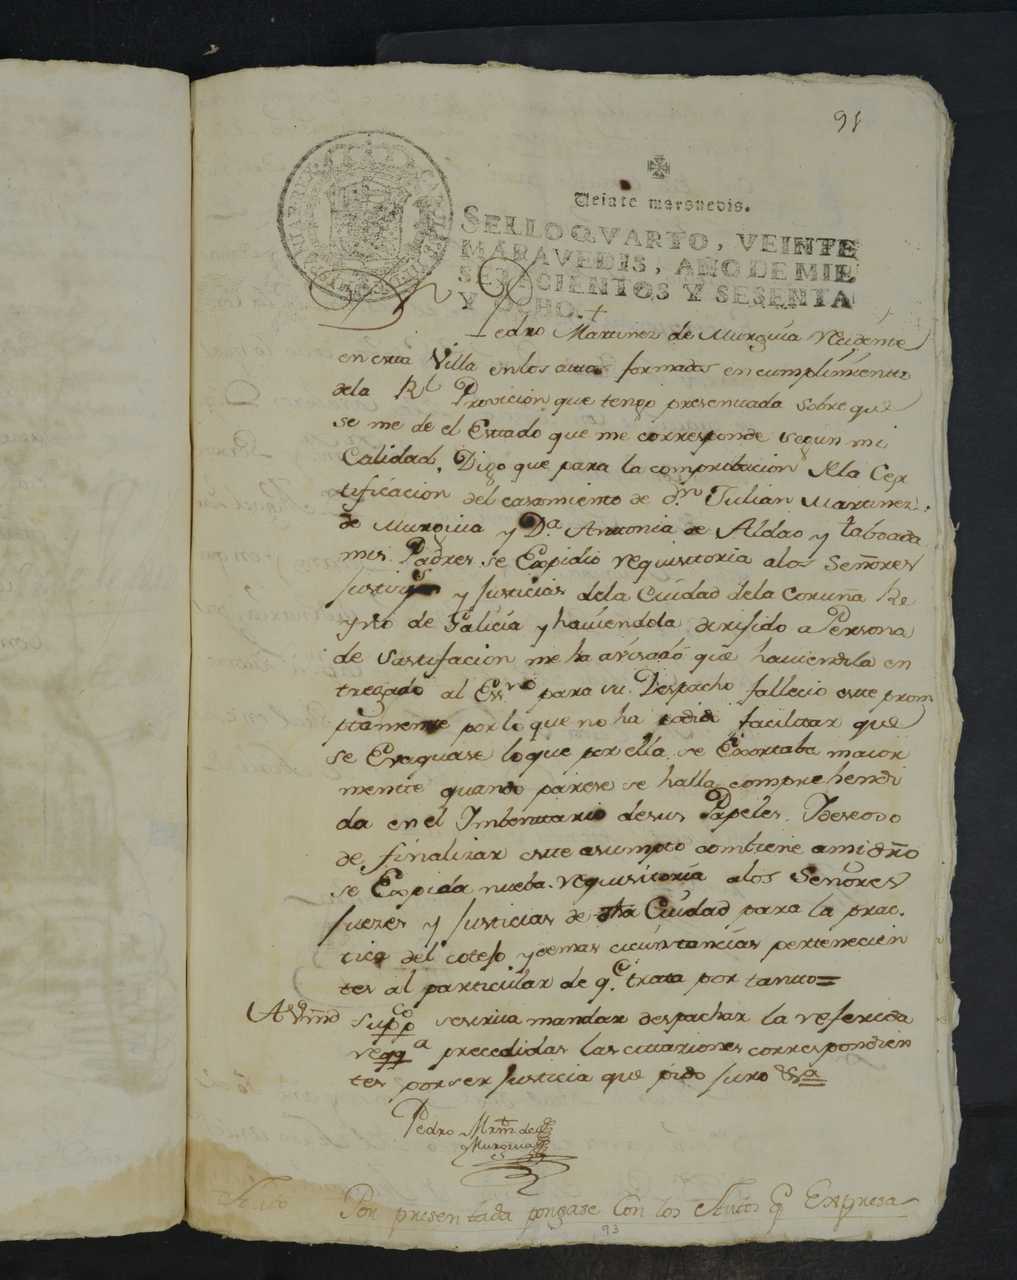 91
Veinte maravedis.
SELLO QVARTO, VEINTE
MARAVEDIS, AÑO DE MIL
SETECIENTOS Y SESENTA
Y OCHO.
Pedro Martinez de Murguia Recidente
en esta Villa en los autos formados en cumplimiento
dela Rl Provicion que tengo presentada sobre que
se me dé el Estado que me corresponde segun mi
Calidad, Digo que para la comprobacion dela Cer
tificacion del casamiento de Dn Julian Martinez
de Murguia y Da Antonia de Aldao y taboada
mis Padres se Expidio requisitoria alos Señores
y Justicias dela Ciudad dela Coruña Re
yno de Galicia y haviendola dirijido a Persona
de Satisfacion me ha avisado que haviendola en
tregado al Essno para su Despacho fallecio este prom
ptamente por lo que no ha podido facilitar que
se Evaquase lo que por ella se Exortaba maior
mente quando parese se halla comprehendi
da en el Imbentario desus Papeles. Ideseoso
de finalizar este asumpto combiene a mi dro
se Expida nueba requisitoria alos Señores
Juezes y Justicias de dha Ciudad para la prac
tica del cotejo y demas circunstancias pertenecien
tes al particular de qe trata por tanto=
A Vmd suppco se sirva mandar despachar la referida
reqqa precedidas las citaciones correspondien
tes por ser Justicia que pido juro &a
Pedro Mrtn de
Murguia
Auto Por presentada pongase con los Autos q Expresa
93